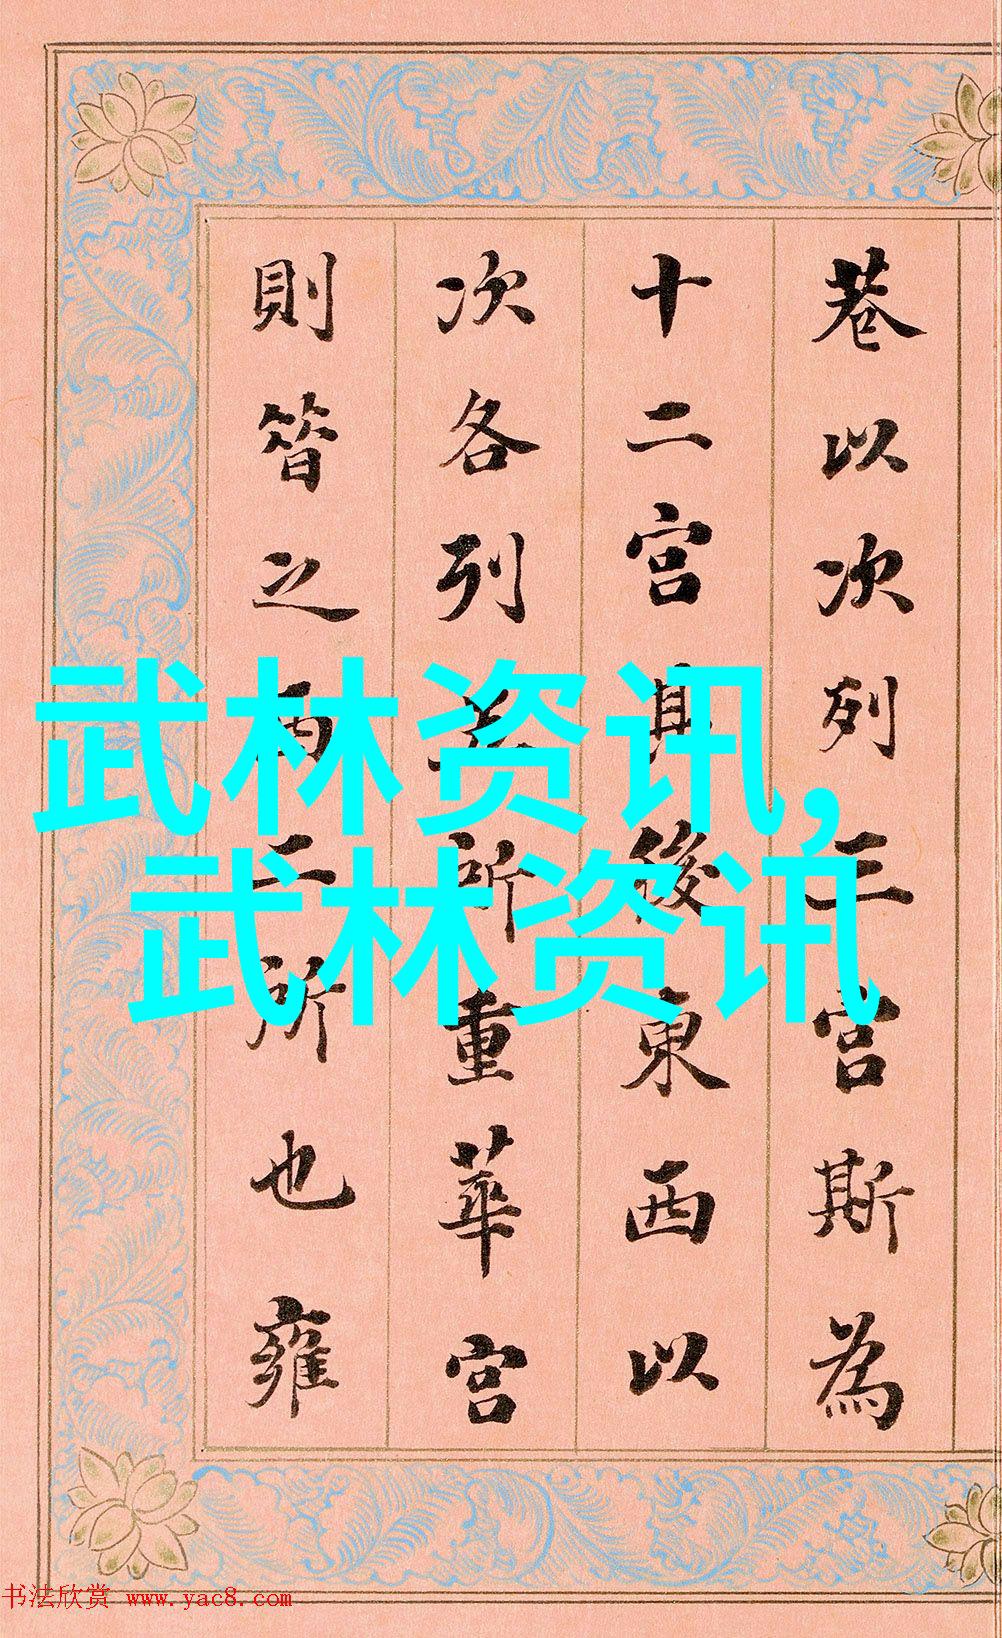 巷以次列三宫斯為
十二宫其後東西以
次各列五所重華宫
則昔之西二所也雍
武林资讯,
武林资讯
书法欣赏 www.yac8.com